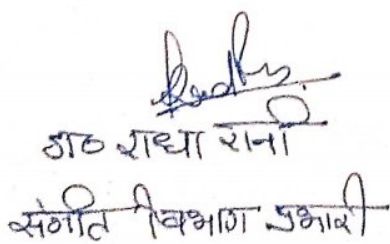 डा० राधा रानी
संगीत विभाग प्रभारी